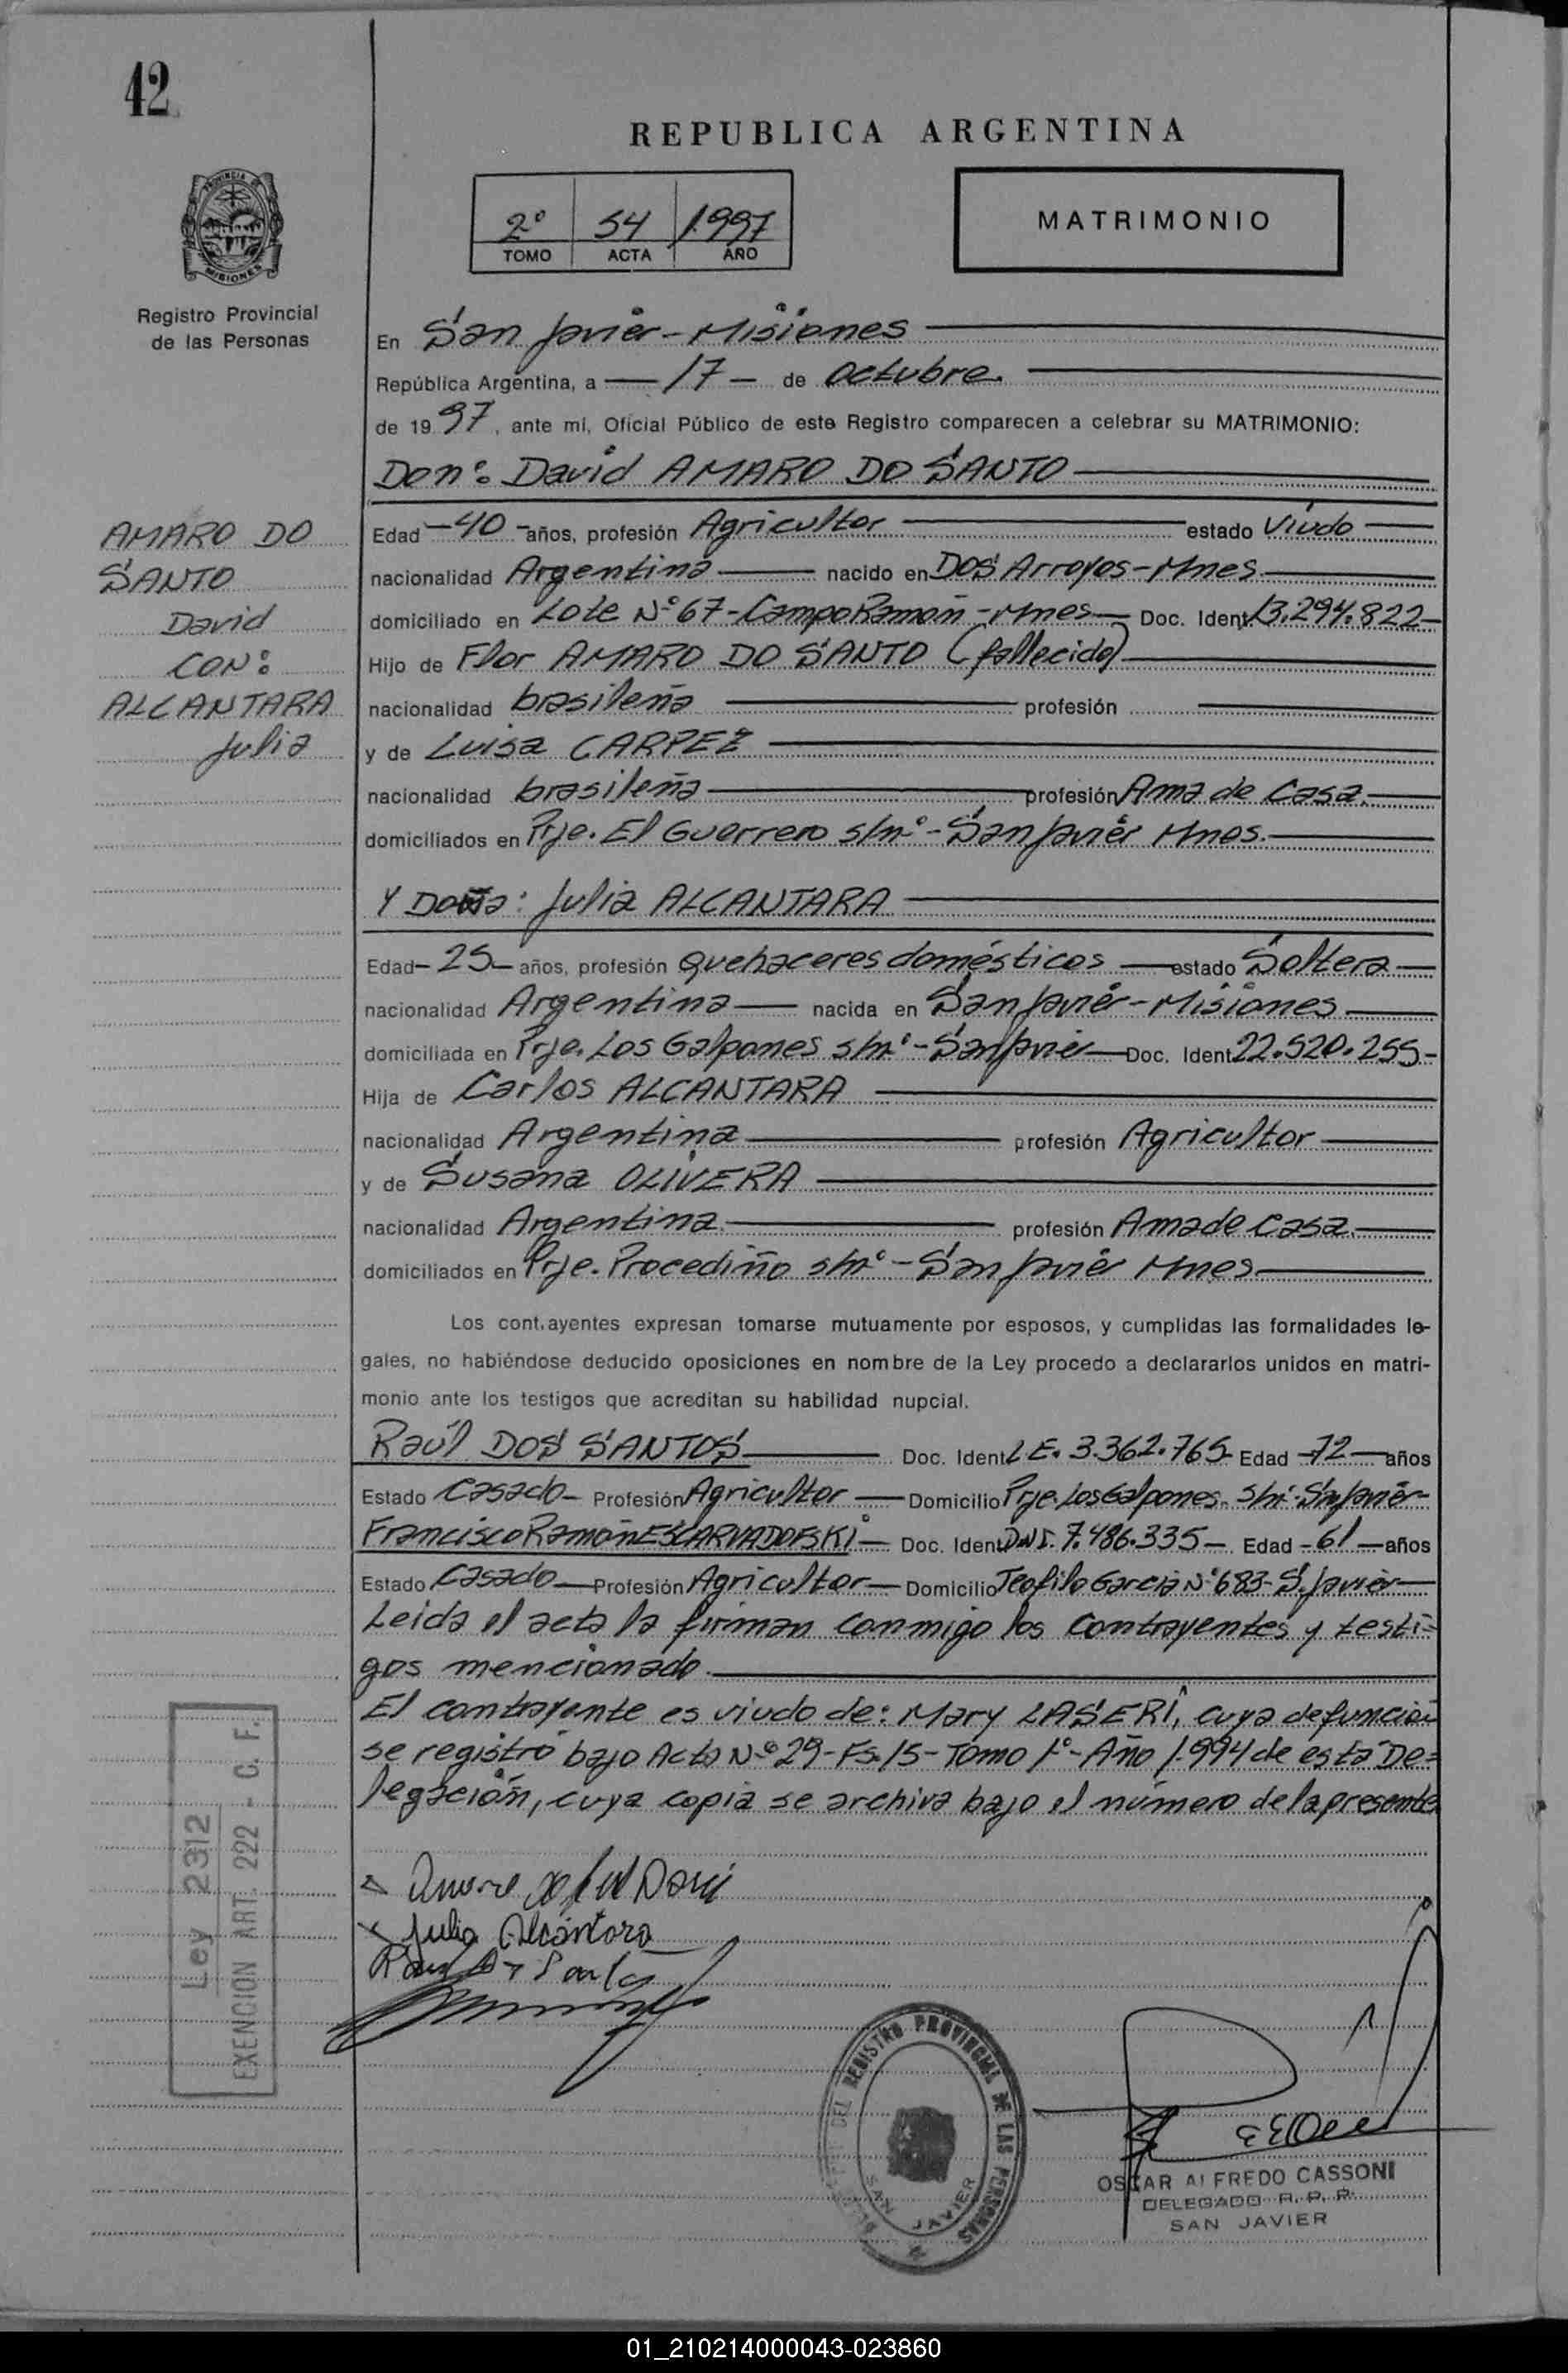 42
REPUBLICA ARGENTINA
2º 54 1.997
TOMO ACTA AÑO
MATRIMONIO
PROVINCIA DE
MISIONES
Registro Provincial
de las Personas
En San Javier - Misiones
República Argentina, a 17 de octubre.
de 1997, ante mí, Oficial Público de este Registro comparecen a celebrar su MATRIMONIO:
Don: David AMARO DO SANTO
AMARO DO
SANTO
David
CON:
ALCANTARA
Julia
Edad -40- años, profesión Agricultor estado Viudo
nacionalidad Argentina nacido en DOS Arroyos-Mnes
domiciliado en Lote Nº 67-Campo Ramón-Mnes Doc. Ident. 13.294.822-
Hijo de Flor AMARO DO SANTO (fallecido)
nacionalidad brasileña profesión
y de Luisa CARPEZ
nacionalidad brasileña profesión Ama de Casa.
domiciliados en Prje. El Guerrero s/nº-San Javier Mnes.
Y Doña: Julia ALCANTARA
Edad -25- años, profesión quehaceres domésticos estado Soltera
nacionalidad Argentina nacida en San Javier-Misiones
domiciliada en Prje. Los Galpones s/nº-San Javier Doc. Ident. 22.520.255-
Hija de Carlos ALCANTARA
nacionalidad Argentina profesión Agricultor
y de Susana OLIVERA
nacionalidad Argentina profesión Ama de Casa.
domiciliados en Prje. Procediño s/nº-San Javier Mnes
Los cont.ayentes expresan tomarse mutuamente por esposos, y cumplidas las formalidades le-
gales, no habiéndose deducido oposiciones en nombre de la Ley procedo a declararlos unidos en matri-
monio ante los testigos que acreditan su habilidad nupcial.
Raúl DOS SANTOS Doc. Ident. L.E. 3.362.765- Edad -72- años
Estado Casado- Profesión Agricultor Domicilio Prje. Los Galpones- s/nº San Javier-
Francisco Ramón ESCARVADOFSKI Doc. Ident. DNI. 7.486.335- Edad -61- años
Estado Casado Profesión Agricultor Domicilio Teofilo Garcia Nº 683-S. Javier
Leida el acta la firman conmigo los contrayentes y testi=
gos mencionado.
El contrayente es viudo de: Mary LASERI, cuya defunción
se registró bajo Acta Nº 29-Fs.15-Tomo 1º-Año 1.994 de esta De=
legación, cuya copia se archiva bajo el número de la presente
Julia Alcántara
Ley 2312
EXENCION ART. 222 - C. F.
DEL REGISTRO PROVINCIAL DE LAS PERSONAS
SAN JAVIER
OSCAR ALFREDO CASSONI
DELEGADO R. P. P.
SAN JAVIER
01_210214000043-023860